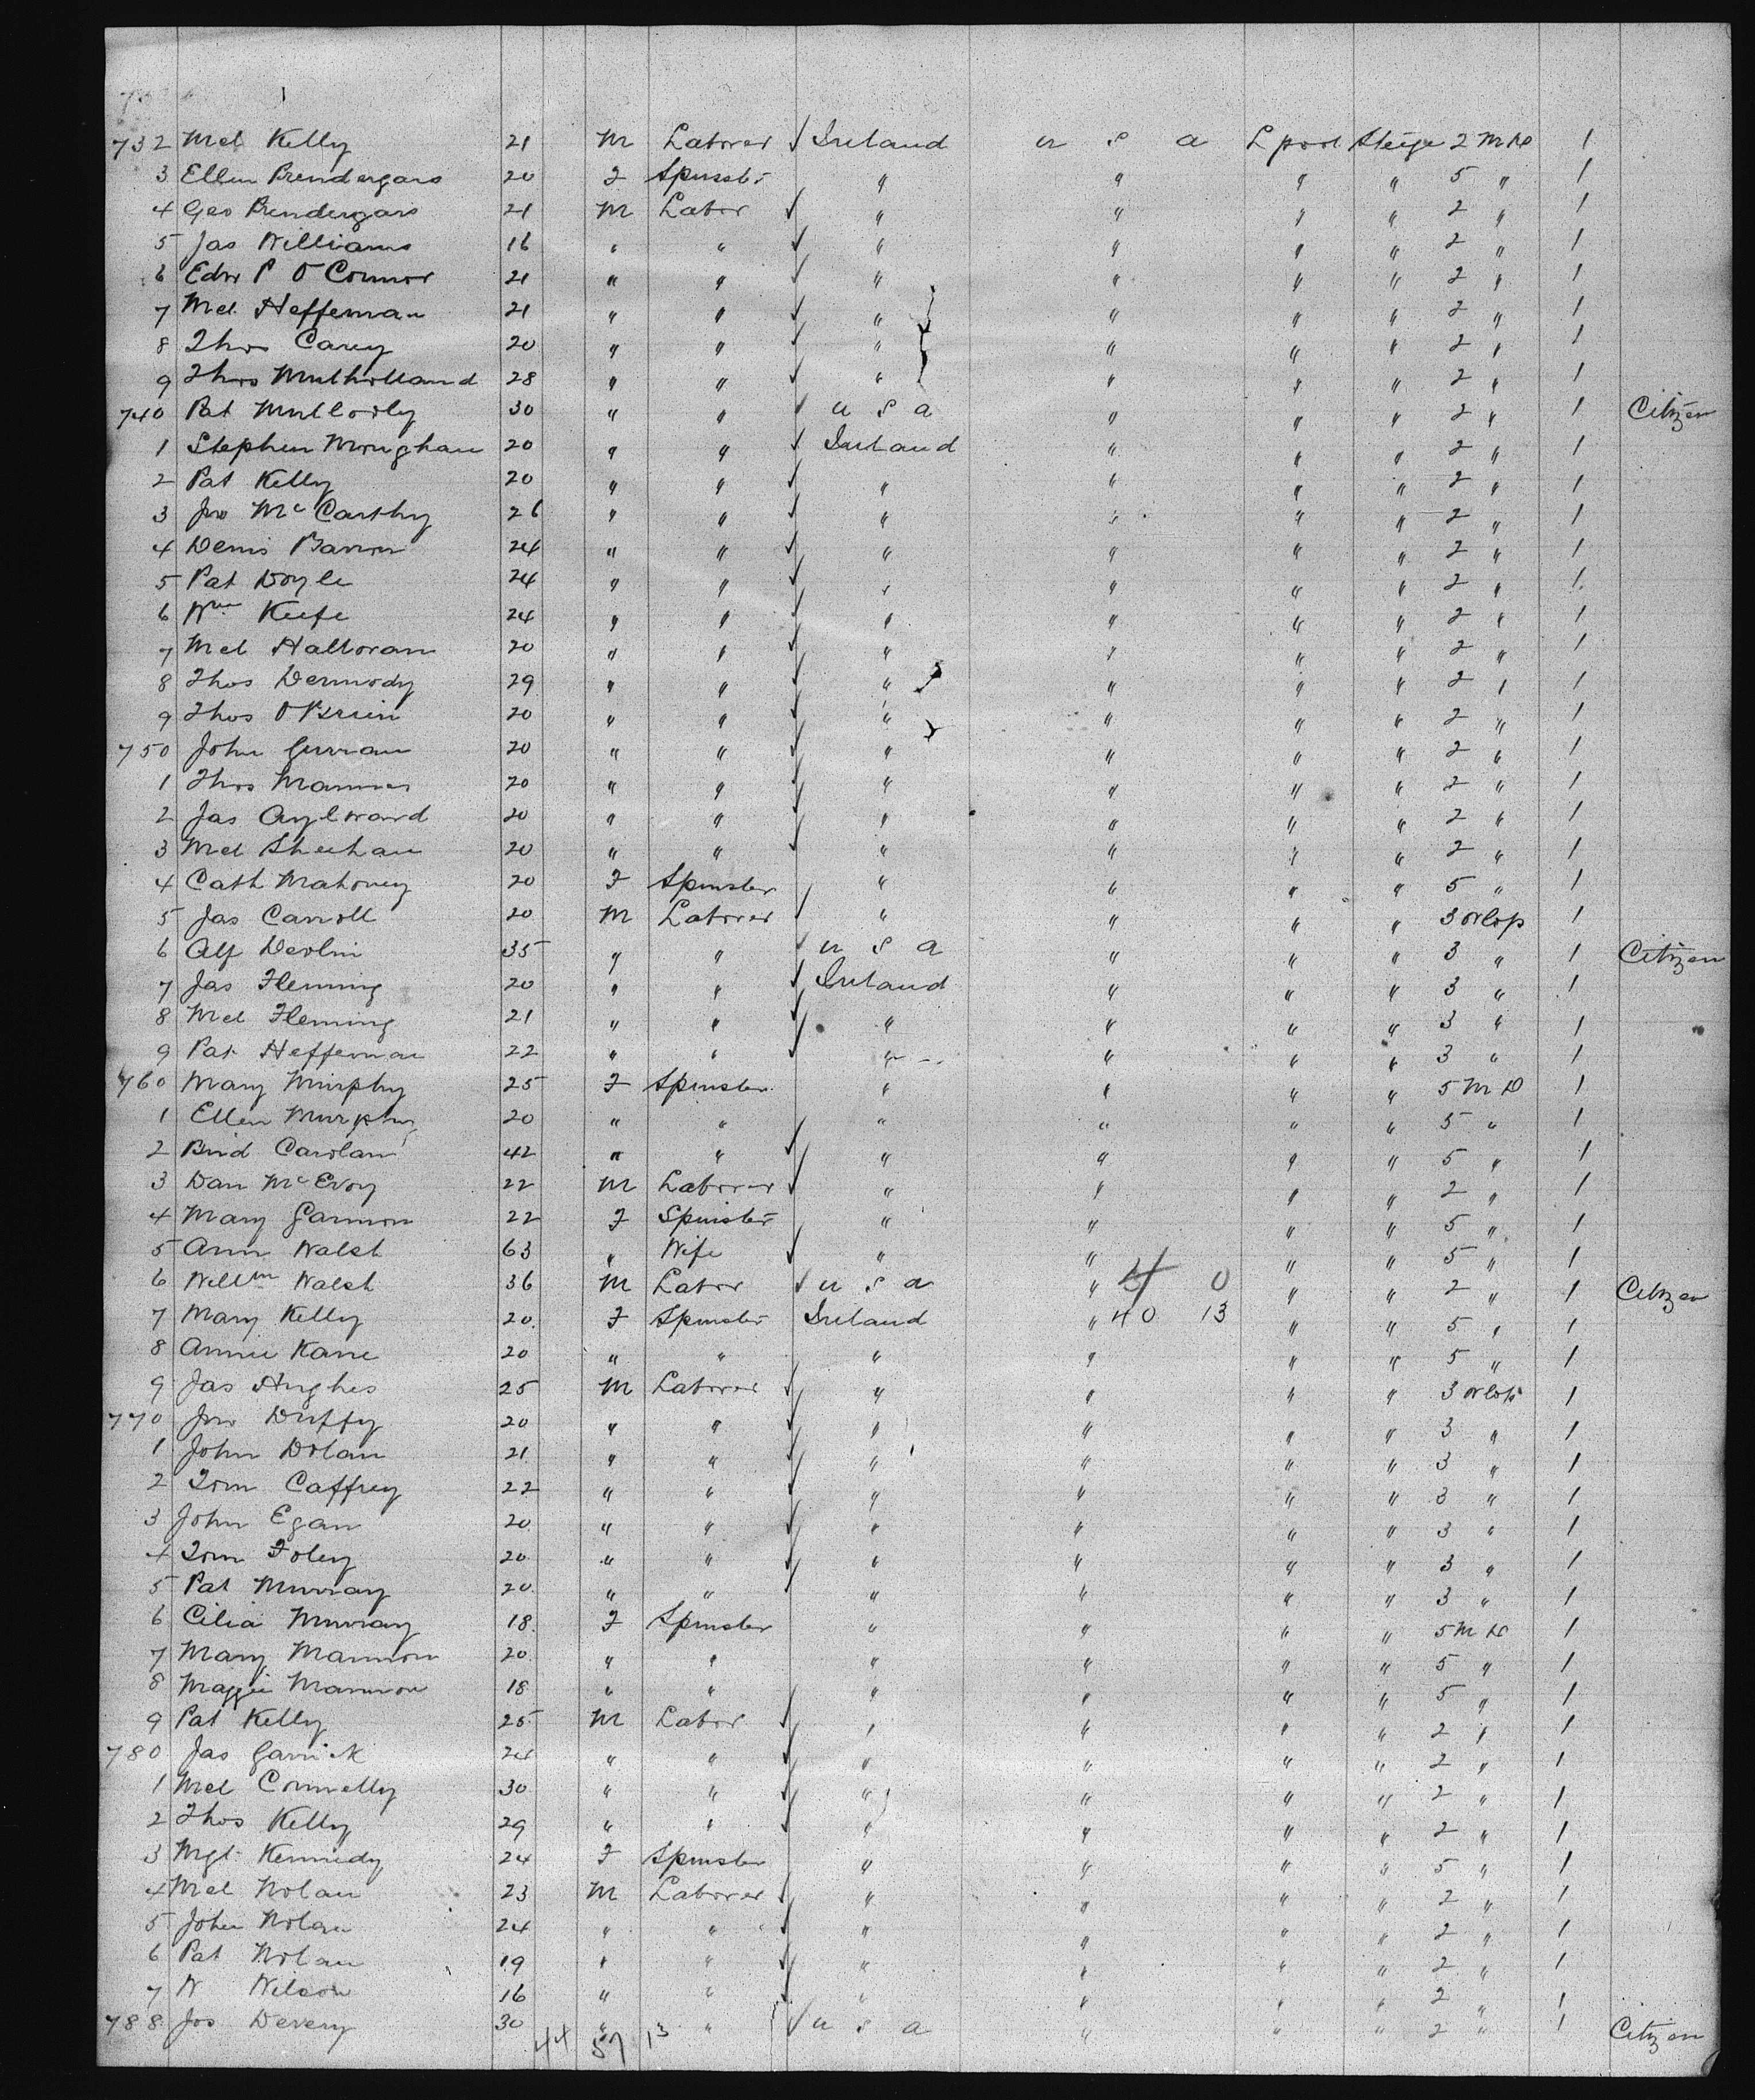 732 Mcl Kelly 21 M Laborer √ Ireland U S A L pool Steige 2 M D 1
3 Ellen Prendergass 20 F Spinster " " " " 5 " 1
4 Geo Prendergass 21 M Labor √ " " " " 2 " 1
5 Jas Williams 16 " " √ " " " " 2 " 1
6 Edw P O Connor 21 " " √ " " " " 2 " 1
7 Mcl Heffernan 21 " " √ " " " " 2 " 1
8 Thos Carey 20 " " √ " " " " 2 " 1
9 Thos Mulholland 28 " " √ " " " " 2 " 1
740 Pat Mulloody 30 " " √ U S A " " " 2 " 1 Citizen
1 Stephen Monghan 20 " " √ Ireland " " " 2 " 1
2 Pat Kelly 20 " " √ " " " " 2 " 1
3 Jno Mc Carthy 26 " " √ " " " " 2 " 1
4 Denis Barron 24 " " √ " " " " 2 " 1
5 Pat Doyle 24 " " √ " " " " 2 " 1
6 Wm Keefe 24 " " √ " " " " 2 " 1
7 Mcl Halloran 20 " " √ " " " " 2 " 1
8 Thos Dermody 29 " " √ " " " " 2 " 1
9 Thos O'Brien 20 " " √ " " " " 2 " 1
750 John Curran 20 " " √ " " " " 2 " 1
1 Thos Manner 20 " " √ " " " " 2 " 1
2 Jas Aylward 20 " " √ " " " " 2 " 1
3 Mcl Sheehan 20 " " √ " " " " 2 " 1
4 Cath Mahoney 20 F Spinster " " " " 5 " 1
5 Jas Carroll 20 M Laborer √ " " " " 3 Orlop 1
6 Alf Devlin 35 " " √ U S A " " " 3 " 1 Citizen
7 Jas Fleming 20 " " √ Ireland " " " 3 " 1
8 Mcl Fleming 21 " " √ " " " " 3 " 1
9 Pat Heffernan 22 " " √ " " " " 3 " 1
760 Mary Murphy 25 F Spinster " " " " 5 M D 1
1 Ellen Murphy 20 " " " " " " 5 " 1
2 Brid Carolan 42 " " √ " " " " 5 " 1
3 Dan McEvoy 22 M Laborer √ " " " " 2 " 1
4 Mary Gannon 22 F Spinster " " " " 5 " 1
5 Ann Walsh 63 " Wife √ " " " " 5 " 1
6 Willm Walsh 36 M Labor √ U S A " 4 0 " " 2 " 1 Citizen
7 Mary Kelly 20 F Spinster Ireland " 40 13 " " 5 " 1
8 Annie Kane 20 " " " " " " 5 " 1
9 Jas Hughes 25 M Laborer √ " " " " 3 Orlop 1
770 Jno Duffy 20 " " √ " " " " 3 " 1
1 John Dolan 21 " " √ " " " " 3 " 1
2 Tom Caffrey 22 " " √ " " " " 3 " 1
3 John Egan 20 " " √ " " " " 3 " 1
4 Tom Foley 20 " " √ " " " " 3 " 1
5 Pat Murray 20 " " √ " " " " 3 " 1
6 Cilia Murray 18 F Spinster " " " " 5 M D 1
7 Mary Mannion 20 " " " " " " 5 " 1
8 Maggie Mannion 18 " " " " " " 5 " 1
9 Pat Kelly 25 M Labor √ " " " " 2 " 1
780 Jas Garrick 24 " " √ " " " " 2 " 1
1 Mcl Connelly 30 " " √ " " " " 2 " 1
2 Thos Kelly 29 " " √ " " " " 2 " 1
3 Mgt Kennedy 24 F Spinster " " " " 5 " 1
4 Mcl Nolan 23 M Laborer √ " " " " 2 " 1
5 John Nolan 24 " " √ " " " " 2 " 1
6 Pat Nolan 19 " " √ " " " " 2 " 1
7 W Wilson 16 " " √ " " " " 2 " 1
788 Jos Devery 30 " " √ U S A " " " 2 " 1 Citizen
44 57 13